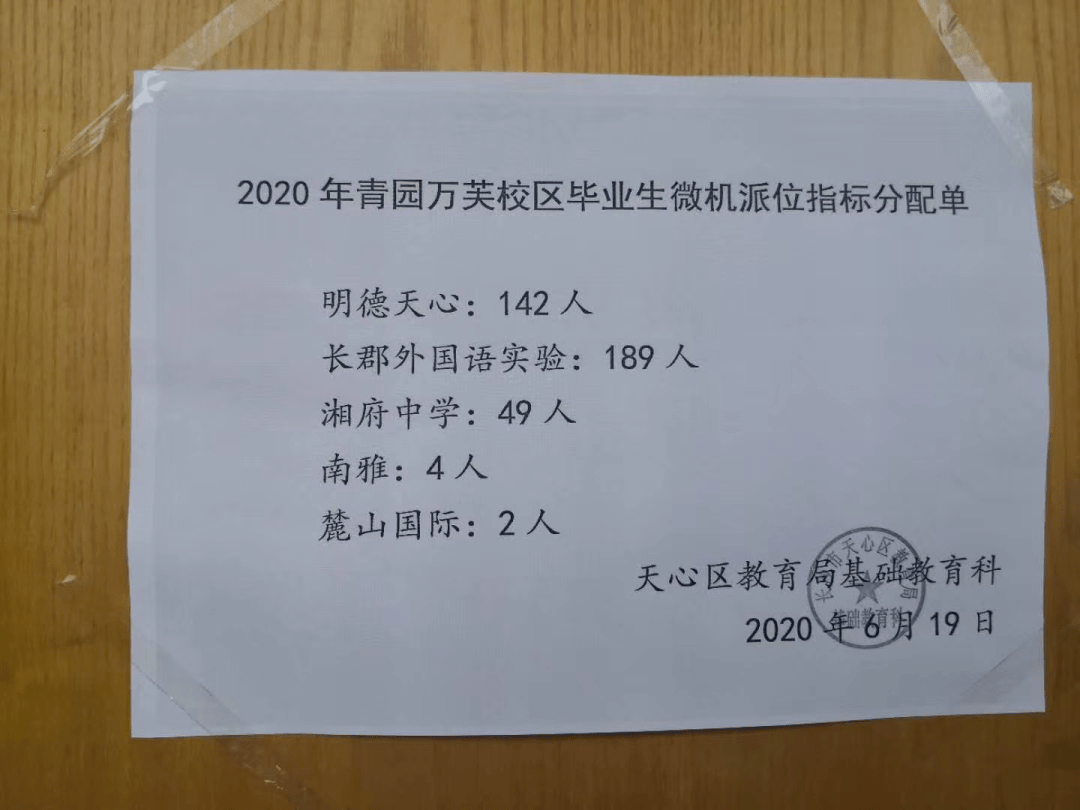 2020 年青园万芙校区毕业生微机派位指标分配单
明德天心：142 人
长郡外国语实验：189 人
湘府中学：49 人
南雅：4 人
麓山国际：2 人
天心区教育局基础教育科
2020 年 6 月 19 日
长沙市天心区教育局
基础教育科